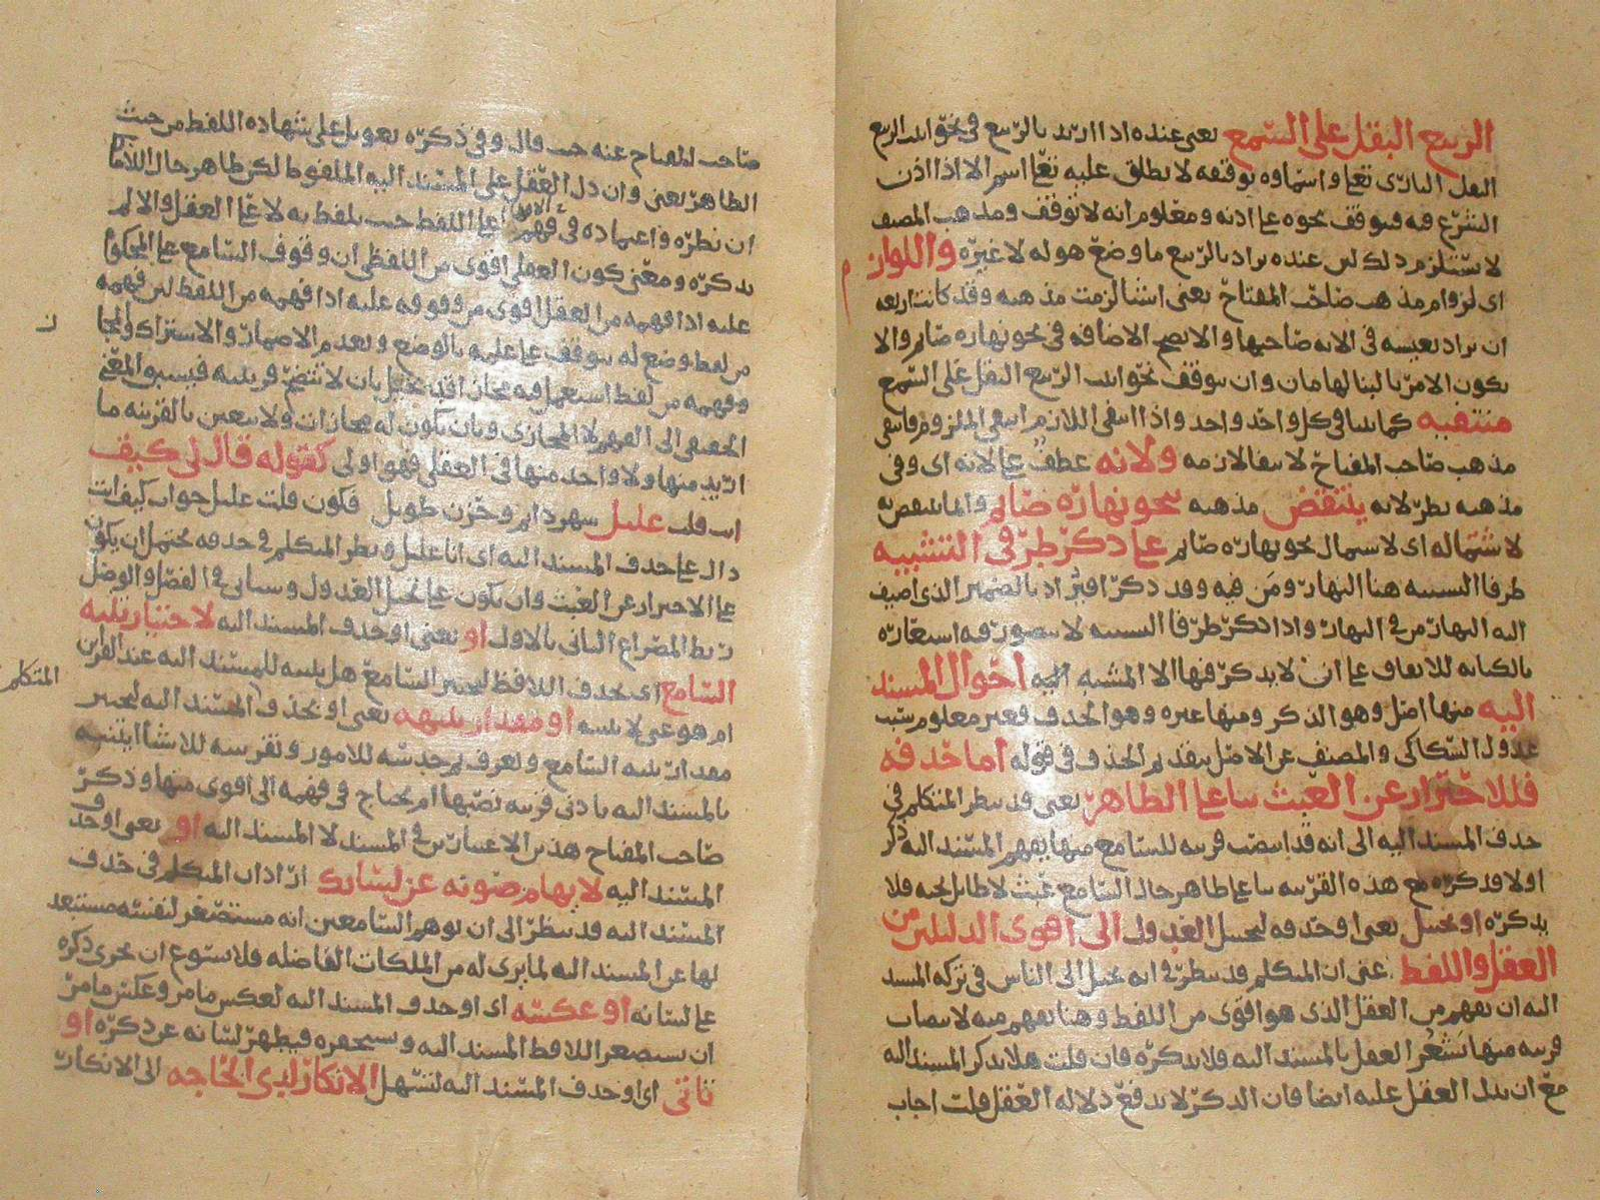 الربيع البقل على السمع يعني عنده اذا اريد بالربيع في نحو انبت الربيع
البقل الباري تعالى واسماوه توقيفه لا يطلق عليه تعالى اسم الا اذا اذن
الشرع فيه فيتوقف نحوه على اذنه ومعلوم انه لا توقف ومذهب المصنف
لا يستلزم ذلك لان عنده يراد بالربيع ما وضع هو له لا غيره واللوازم
اي لوازم مذهب صاحب المفتاح يعني اشيا لزمت مذهبه وقد كانت اربعه
ان يراد بعيشه في الايه صاحبها والا يصح الاضافه في نحو نهاره صايم والا
يكون الامر بالبنا لهامان وان يتوقف نحو انبت الربيع البقل على السمع
منتفيه كما بينا في كل واحد واحد واذا انتفى اللازم انتفى الملزوم فانتفى
مذهب صاحب المفتاح لانتفا لازمه ولانه عطف على لانه اي وفي
مذهبه نظر لانه ينتقض مذهبه بنحو نهاره صايم وانما ينتقض به
لاشتماله اي لاشتمال نحو نهاره صايم على ذكر طرفي التشبيه
طرفا التشبيه هنا النهار ومن فيه وقد ذكرا اذ المراد بالضمير الذي اضيف
اليه النهار من في النهار واذا ذكر طرفا التشبيه لا يتصور فيه استعاره
بالكنايه للاتفاق على ان لا يذكر فيها الا المشبه احوال المسند
اليه منها اصل وهو الذكر ومنها غيره وهو الحذف وغير معلوم سبب
عدول السكاكي والمصنف عن الاصل بتقديم الحذف في قوله اما حذفه
فللاحتراز عن العبث بنا على الظاهر يعني قد ينظر المتكلم في
حذف المسند اليه الى انه قد انتصب قرينه للسامع منها يفهم المسند اليه ذكر
اولا وذكره مع هذه القرينه بنا على ظاهر حال السامع عبث لا طايل تحته فلا
يذكره او تخييل يعني او حذفه لتخييل العدول الى اقوى الدليلين من
العقل واللفظ عنى ان المتكلم قد ينظر في انه يخيل الى الناس في تركه المسند
اليه ان يفهم من العقل الذي هو اقوى من اللفظ وهنا يفهم منه لانتصاب
قرينه منها يشعر العقل بالمسند اليه فلا يذكره فان قلت هلا يذكر المسند اليه
مع ان يدل العقل عليه ايضا فان الذكر لا يدفع دلاله العقل قلت اجاب
صاحب المفتاح عنه حيث قال وفي ذكره تعويل على شهاده اللفظ من حيث
الظاهر يعني وان دل العقل على المسند اليه الملفوظ لكن ظاهر حال اللافظ
ان نظره واعتماده في فهم على اللفظ حيث تلفظ به لا على العقل والا لم
يذكره ومعنى كون العقل اقوى من اللفظ ان وقوف السامع على المحكوم
عليه اذا فهمه من العقل اقوى من وقوفه عليه اذا فهمه من اللفظ لان فهمه
من لفظ وضع له يتوقف على علمه بالوضع وبعدم الاضمار والاشتراك والمجاز
وفهمه من لفظ استعمل فيه مجازا قد يختل بان لا تتضح قرينته فيسبق المعنى
الحقيقي الى الفهم لا المجازي وبان يكون له مجازات ولا يتعين بالقرينه ما
اريد منها ولا واحد منها في العقل فهو اولى كقوله قال لي كيف
انت قلت عليل سهر دايم وحزن طويل فكون قلت عليل جواب كيف انت
دال على حذف المسند اليه اي انا عليل ونظر المتكلم في حذفه يحتمل ان يكون
على الاحتراز عن العبث وان يكون على تخييل العدول وسياتي في الفصل والوصل
ربط المصراع الثاني بالاول او يعني او حذف المسند اليه لاختبار تنبه
السامع اي يحذف اللافظ ليختبر السامع هل يتنبه للمسند اليه عند القراين
ام هو غبي لا يتنبه او مقدار تنبهه يعني او يحذف المسند اليه ليختبر
مقدار تنبه السامع ولعرف
بالمسند اليه بادنى قرينه نصبها ام يحتاج في فهمه الى اقوى منها وذكر
صاحب المفتاح هذين الاعتبارين في المسند لا المسند اليه او يعني او حذف
المسند اليه لايهام صونه عن لسانك اراد ان المتكلم في حذف
المسند اليه قد ينظر الى ان يوهم السامعين انه مستصغر لنفسه مستبعد
لها عن المسند اليه لما يرى له من الملكات الفاضله فلا يسوغ ان يجري ذكره
على لسانه او عكسه اي او حذف المسند اليه لعكس ما مر وعكس ما مر
ان يستصغر اللافظ المسند اليه ويستحقره فيطهر لسانه عن ذكره او
تاتي اي او حذف المسند اليه لتسهل الانكار لدى الحاجه الى الانكار
المتكلم